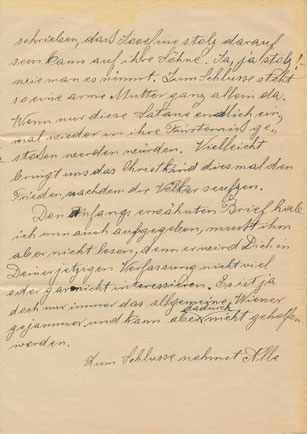 schrieben, das Josefine stolz darauf
sein kann auf ihre Söhne. Ja, ja stolz!
wie man es nimmt. Zum Schlusse steht
so eine arme Mutter ganz allein da.
Wenn nur diese Satane endlich ein,
mal wieder in ihre Finsternis ge,
stossen werden würden. Vielleicht
bringt uns das Christkind diesmal den
Frieden, nachdem die Völker seufzen.
Den Anfangs erwähnten Brief habe
ich nun auch aufgegeben, musst ihm
aber nicht lesen, denn er wird Dich in
Deiner jetzigen Verfassung nicht viel
oder gar nicht interessieren. Es ist ja
doch nur immer das allgemeine Wiener
gejammer und kann dadurch aber nicht geholfen
werden.
Zum Schlusse nehmet Alle